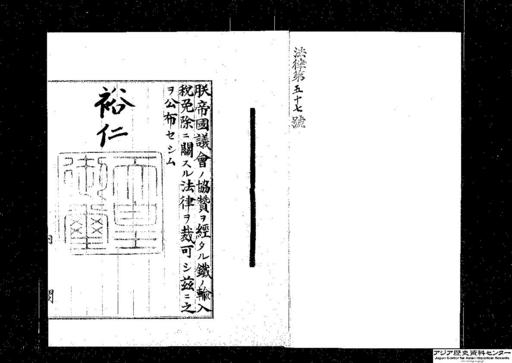 法律第五十七號
朕帝國議會ノ協贊ヲ經タル鐵ノ輸入
稅免除ニ關スル法律ヲ裁可シ茲ニ之
ヲ公布セシム
裕仁
天皇御璽
内閣
アジア歴史資料センター
Japan Center for Asian Historical Records